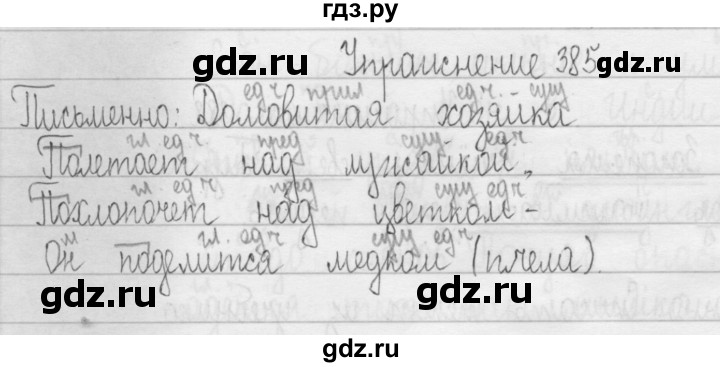 гдз.ру
gdz.ru gdz.ru
Упражнение 385
ед ч прил ед ч. сущ
Письменно: Домовитая хозяйка
гл. ед ч. пред сущ. ед ч
Полетает над лужайкой,
гл. ед ч. пред сущ ед ч
Похлопочет над цветком -
м гл. ед ч сущ ед ч
Он поделится медком (пчела).
gdz.ru gdz.ru
gdz.ru